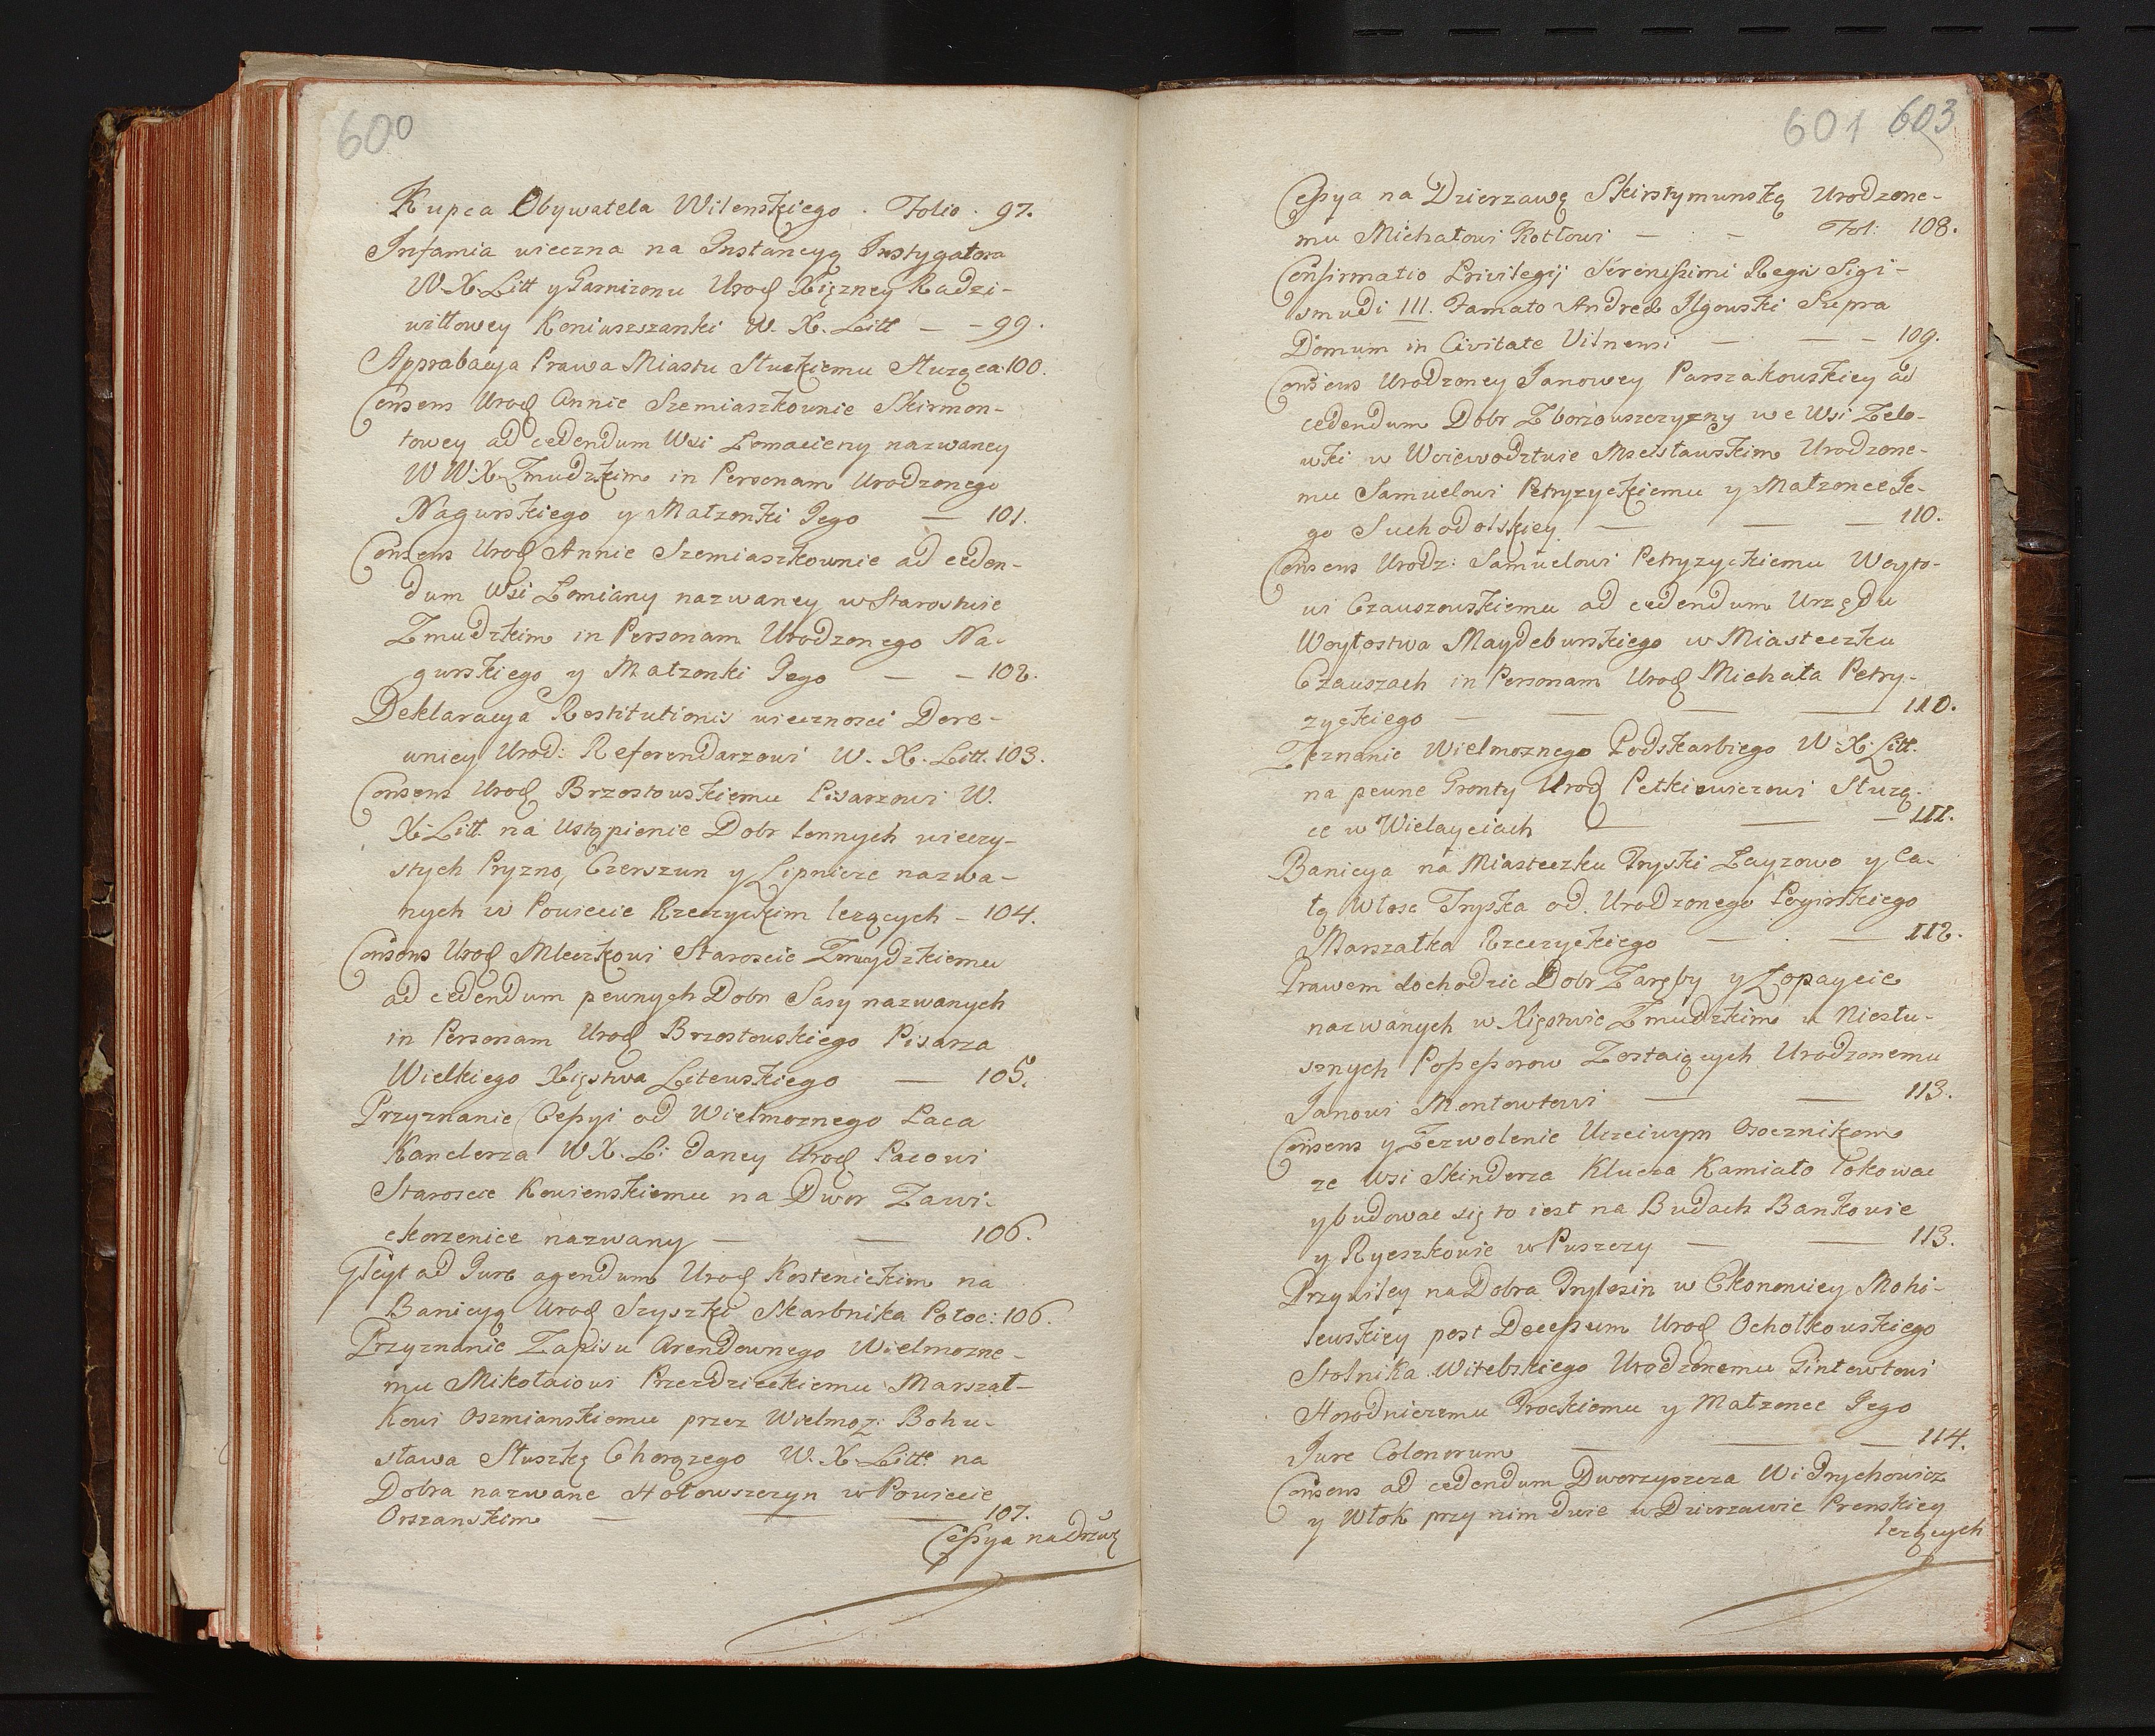 600
Kupca Obywatela Wilenskiego . Folio . 97.
Infamia wieczna na Instancyą Instygatora
W. X. Litt y Garnizonu Urod Xięzney Radzi-
wiłłowey Koniuszszanki W. X. Litt — - 99.
Apprabacya Prawa Miastu Słuckiemu Słuząca 100.
Consens Urod Annie Szemiaszkownie Skirmon-
towey ad cedendum Wsi Lomacieny nazwaney
W W: X. Zmudzkim in Personam Urodzonego
Nagurskiego y Małzonki Jego — 101.
Consens Urod Annie Szemiaszkownie ad ceden-
dum Wsi Lomiany nazwaney w Starostwie
Zmudzkim in Personam Urodzonego Na-
gurskiego y Małzonki Jego — - 102.
Deklaracya Restitutionis wiecznosci Dere-
wnicy Urod: Referendarzowi W. X. Litt. 103.
Consens Urod Brzostowskiemu Pisarzowi W.
X. Litt. na Ustąpienie Dobr lennych wieczy-
stych Pryzno, Czerszun y Lipnicze nazwa-
nych w Powiecie Rzeczyckim lezących - 104.
Consens Urod Mleczkowi Staroscie Zmuydzkiemu
ad cedendum pewnych Dobr Sasy nazwanych
in Personam Urod Brzostowskiego Pisarza
Wielkiego Xięstwa Litewskiego — 105.
Przyznanie Cessyi od Wielmoznego Paca
Kanclerza W. X. Li: daney Urod Pacowi
Staroscie Kowienskiemu na Dwor Zawi-
ckorzenice nazwany — — 106.
Gleyt ad Jure agendum Urod Kostenickim na
Banicyą Urod Szyszki Skarbnika Połoc: 106.
Przyznanie Zapisu Arendownego Wielmozne-
mu Mikołaiowi Przezdzieckiemu Marszał-
kowi Oszmianskiemu przez Wielmoz: Bohu-
sława Słuszkę Chorązego W. X. Litt. na
Dobra nazwane Hołowszczyn w Powiecie
Orszanskim — — — 107.
Cessya na Drzwę
601 603
Cessya na Dzierzawę Skirstymunską Urodzone-
mu Michałowi Kotłowi — - Fol: 108.
Confirmatio Privilegij Serenissimi Regis Sigi-
smudi III. Famato Andreæ Ilgowski Supra
Domum in Civitate Vilnensi — — - 109.
Consens Urodzoney Janowey Parszakowskiey ad
cedendum Dobr Zborzowszczyzny we Wsi Zelo-
wki w Woiewodztwie Mscisławskim Urodzone-
mu Samuelowi Petryzyckiemu y Małzonce Je-
go Suchodolskiey — — — 110.
Consens Urodz: Samuelowi Petryzyckiemu Woyto-
wi Czauszowskiemu ad cedendum Urzędu
Woytostwa Maydeburskiego w Miasteczku
Czauszach in Personam Urod Michała Petry-
zyckiego — — — — 110.
Zeznanie Wielmoznego Podskarbiego W. X. Litt.
na pewne Gronty Urod Petkiewiczowi Słuzą-
ce w Wielayciach — — — 111.
Banicya na Miasteczku Tryski Layzowo y Ca-
łą Włosc Tryska od Urodzonego Poginskiego
Marszałka Rzeczyckiego — - — 112.
Prawem dochodzic Dobr Zaręby y Lopaycie
nazwanych w Xięstwie Zmudzkim u Niesłu-
sznych Possessorow Zostaiących Urodzonemu
Janowi Montowtowi — — 113.
Consens y Zezwolenie Uczciwym Osocznikom
ze Wsi Skinderza Klucza Kamiało lokowac
y budowac się to iest na Budach Bankowie
y Ryeszkowie w Puszczy — — 113.
Przywiley na Dobra Trylesin w Ekonomiey Mohi-
lewskiey post Decessum Urod Ochotkowskiego
Stolnika Witebskiego Urodzonemu Gintowtowi
Horodniczemu Trockiemu y Małzonce Jego
Jure Colonorum — — — 114.
Consens ad cedendum Dworzyszcza Wi Trychowicz
y Włok przy nim dwie w Dzierzawie Prenskiey
lezących